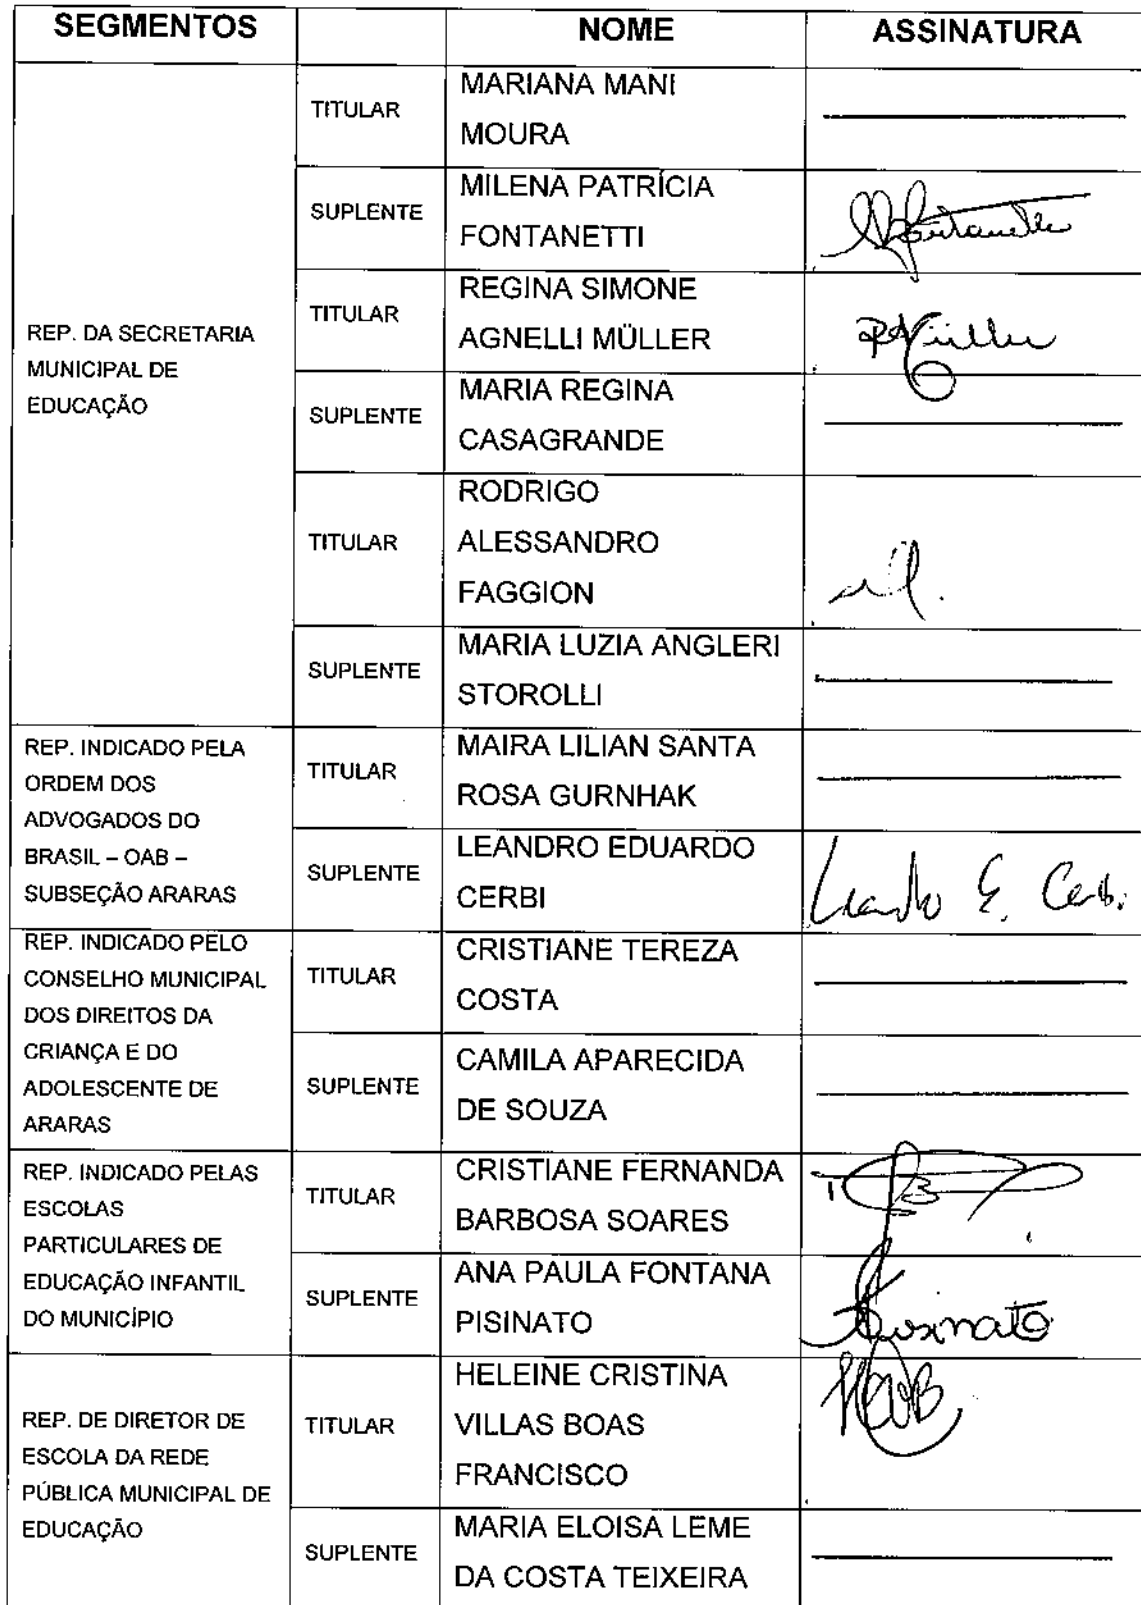 SEGMENTOS NOME ASSINATURA
REP. DA SECRETARIA
MUNICIPAL DE
EDUCAÇÃO
TITULAR
MARIANA MANI
MOURA
SUPLENTE
MILENA PATRÍCIA
FONTANETTI
TITULAR
REGINA SIMONE
AGNELLI MÜLLER
RMüller
SUPLENTE
MARIA REGINA
CASAGRANDE
TITULAR
RODRIGO
ALESSANDRO
FAGGION
SUPLENTE
MARIA LUZIA ANGLERI
STOROLLI
REP. INDICADO PELA
ORDEM DOS
ADVOGADOS DO
BRASIL – OAB –
SUBSEÇÃO ARARAS
TITULAR
MAIRA LILIAN SANTA
ROSA GURNHAK
SUPLENTE
LEANDRO EDUARDO
CERBI
Leandro E. Cerbi
REP. INDICADO PELO
CONSELHO MUNICIPAL
DOS DIREITOS DA
CRIANÇA E DO
ADOLESCENTE DE
ARARAS
TITULAR
CRISTIANE TEREZA
COSTA
SUPLENTE
CAMILA APARECIDA
DE SOUZA
REP. INDICADO PELAS
ESCOLAS
PARTICULARES DE
EDUCAÇÃO INFANTIL
DO MUNICÍPIO
TITULAR
CRISTIANE FERNANDA
BARBOSA SOARES
SUPLENTE
ANA PAULA FONTANA
PISINATO
REP. DE DIRETOR DE
ESCOLA DA REDE
PÚBLICA MUNICIPAL DE
EDUCAÇÃO
TITULAR
HELEINE CRISTINA
VILLAS BOAS
FRANCISCO
SUPLENTE
MARIA ELOISA LEME
DA COSTA TEIXEIRA